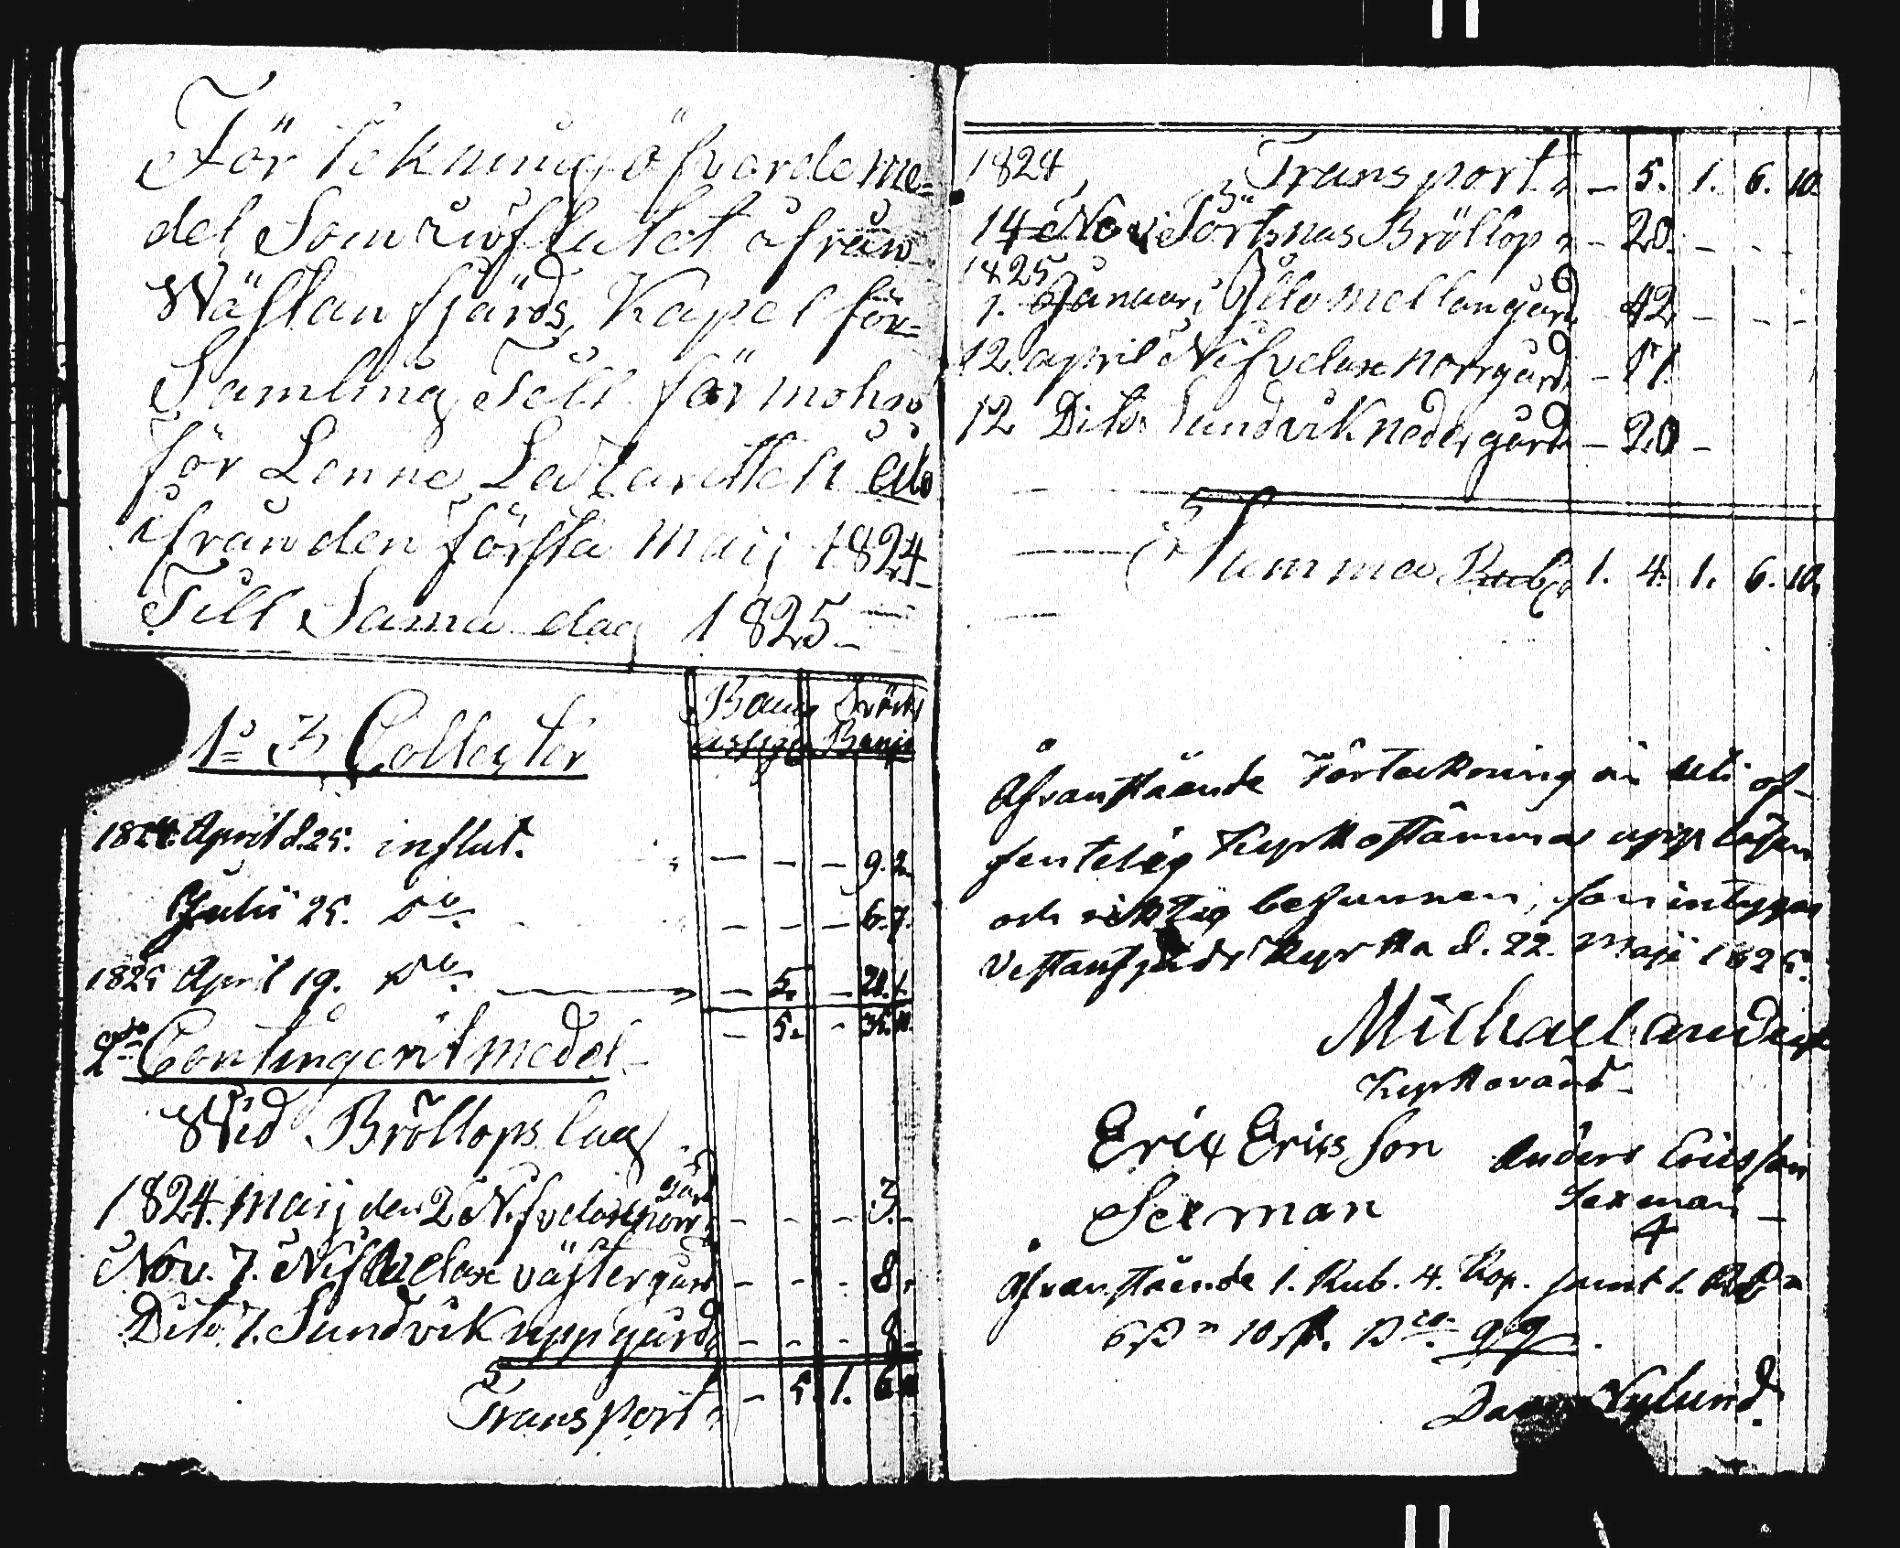 Förtekning öfver de me=
del Som influtet ifrån
Wästanfjärds Kapel för=
Samling Till förmohn
för Lenne Lasarettet i Åbo
ifrån den första Maij 1824
Till Sama dag 1825 —
Banco assign Swänsk Banco
1o 3 Collecter
1824. April d. 25. influt. — — — 9. 2.
Julii 25. Do — — — 6. 7.
1825 April 19. Do — 5. — 20. 1.
— 5. — 35. 10.
2do Contingent medel
Wid Bröllops lag
1824. Maij den 2 Nifvelax norrgård — — — 3. —
Nov. 7. Nifvelax västergård — — — 8.
Dito 7. Sundvik uppgård — — — 8.
Transport — 5. 1. 6. 10
1824 Transport — 5. 1. 6. 10.
14 Nov. Törtnas Bröllop — 20. — — —
1825
1. Januari Gilo mellangård 42 — — —
12. april Nifvelax norrgård — 17.
12 Dito Sundvik nedergård — 20 —
Summa Rub. 1. 4. 1. 6. 10.
Åfvanstående Förteckning är uti of-
fentelig Kyrkostämma uppläsen
och riktig befunnen, som intygas
Vestanfjärds Kyrka d. 22. Maji 1825.
Michael
Kyrkovärd
Eric Ericsson Anders Ericsson
Sexman Sexman
Åfvanstående 1. Rub. 4. Kop. samt 1. Rd
6 10
Nylund.